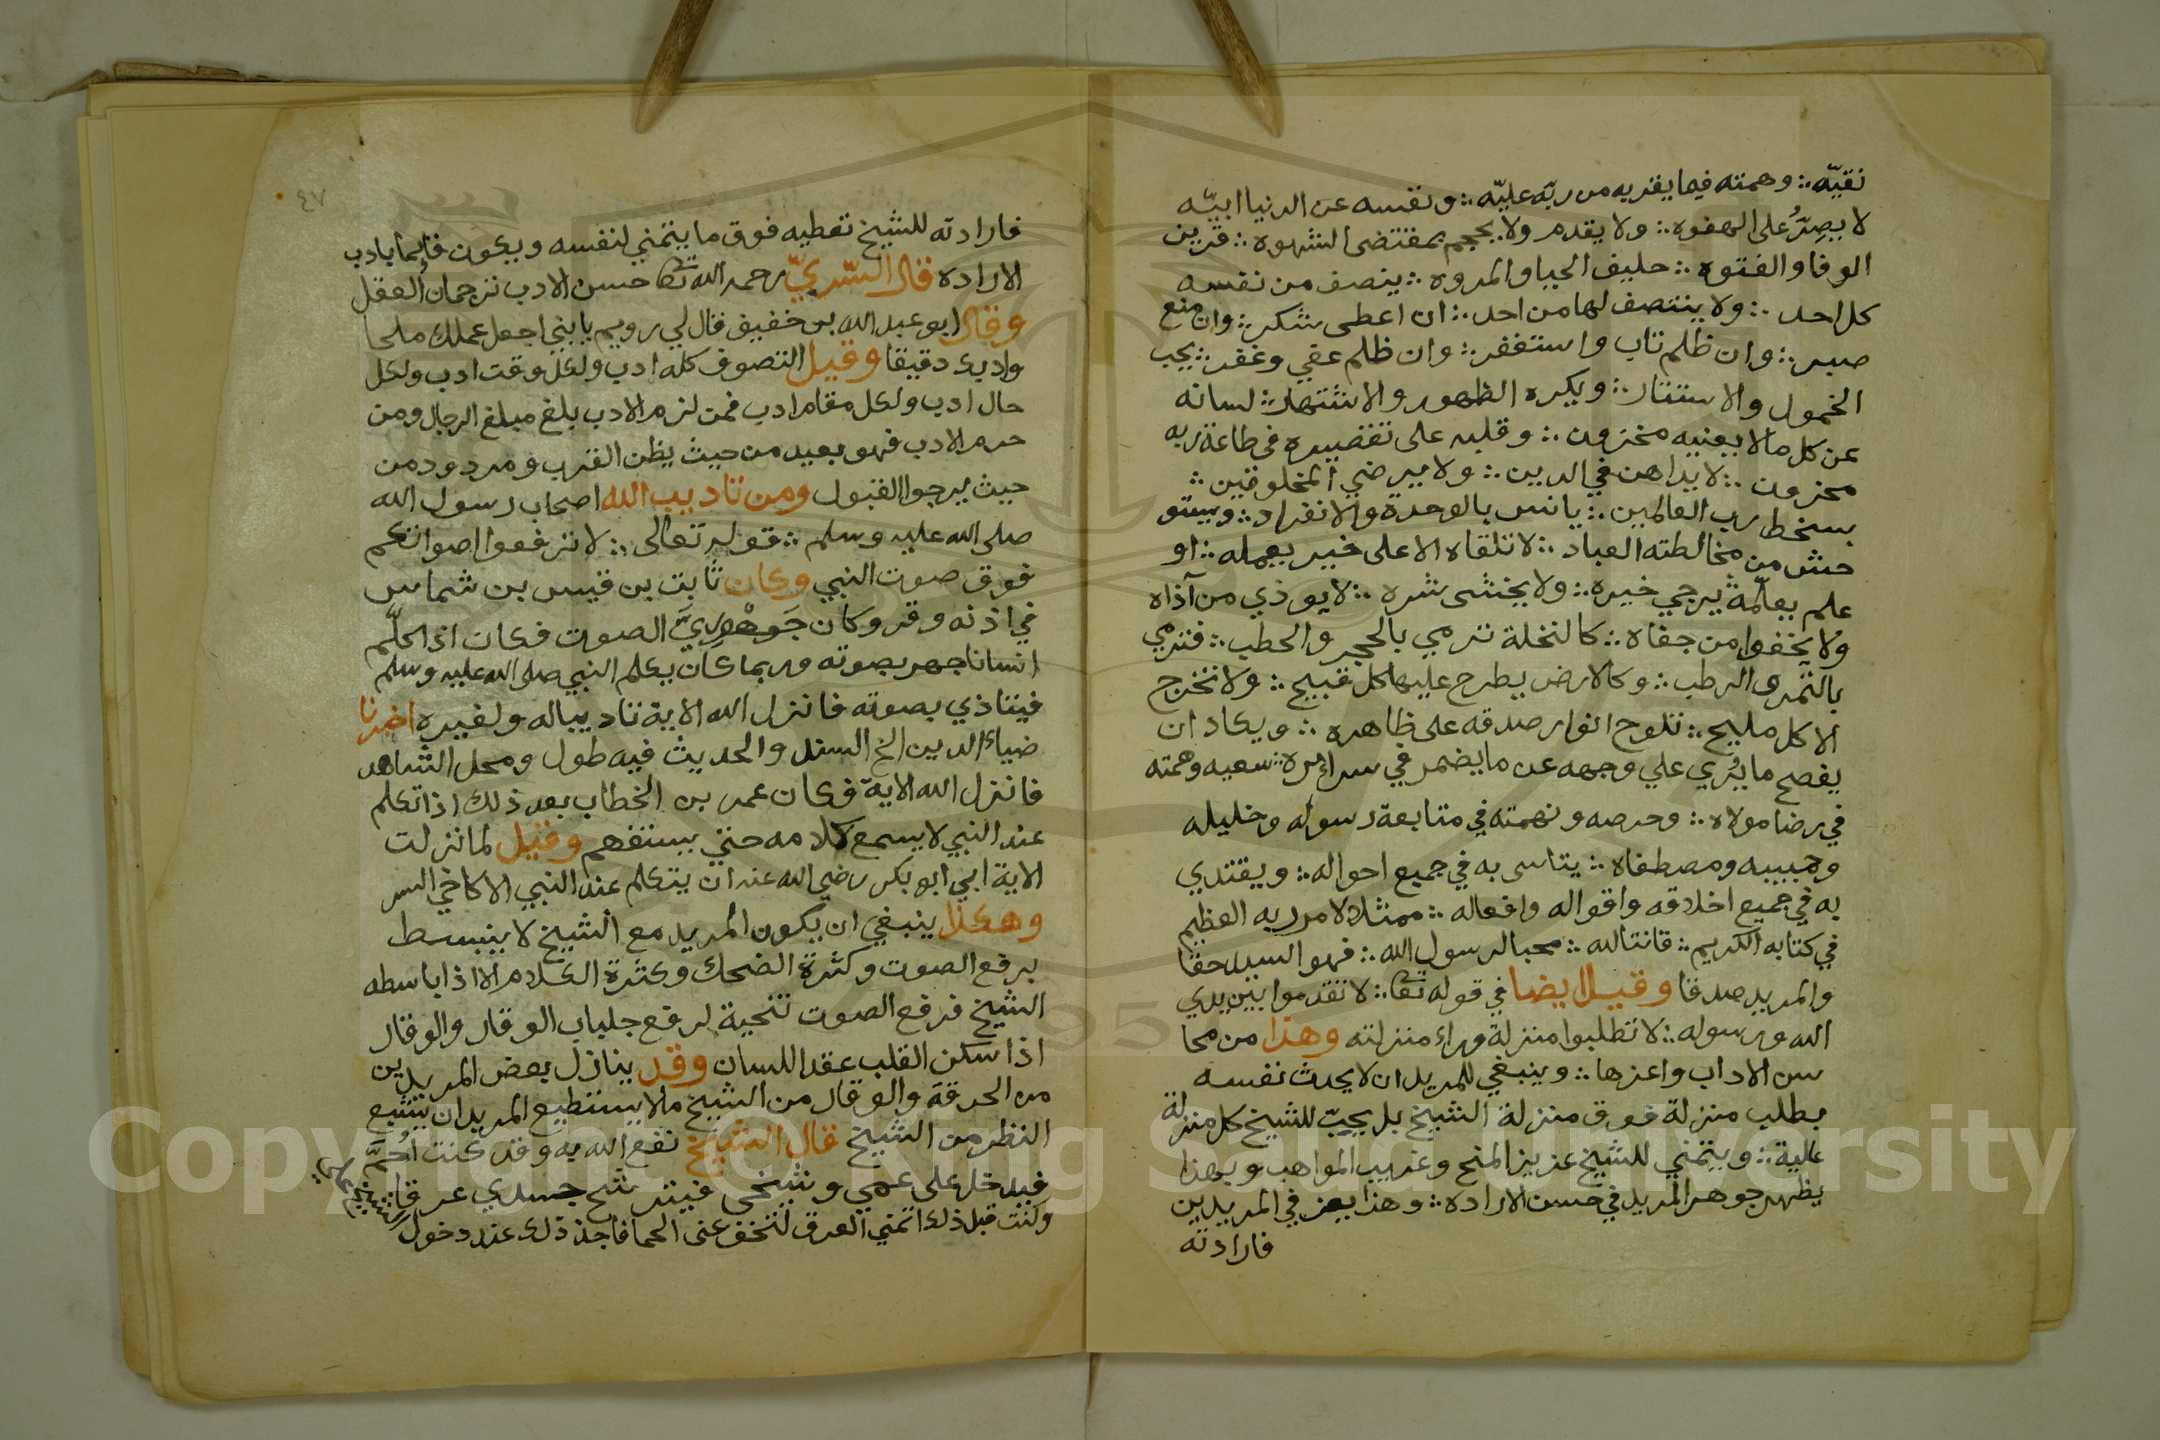 نقيّه ∴ وهمته فيما يقربه من ربّه عليّه ∴ ونفسه عن الدنيا ابيّه
لا يصِرُّ على الهفوه ∴ ولا يقدم ولا يحجم بمقتضى الشهوه ∴ قرين
الوفا والفتوه ∴ حليف الحيا والمروه ∴ ينصف من نفسه
كل احد ∴ ولا ينتصف لها من احد ∴ ان اعطى شكر ∴ وان منع
صبر ∴ وان ظلم تاب واستغفر ∴ وان ظلم عفي وغفر ∴ يحب
الخمول والاستتار ∴ ويكره الظهور والاشتهار ∴ لسانه
عن كل مالا يعنيه مخزون ∴ وقلبه على تقصيره في طاعة ربه
محزون ∴ لا يداهن في الدين ∴ ولا يرضي المخلوقين ∴
بسخط رب العالمين ∴ يانس بالوحدة والانفراد ∴ ويستو
حش من مخالطته العباد ∴ لا تلقاه الا على خير يعمله ∴ او
علم يعلّمه يرجي خيره ∴ ولا يخشى شره ∴ لا يوذي من آذاه
ولا يخفوا من جفاه ∴ كالنخلة ترمي بالحجر والحطب ∴ فترمي
بالتمر والرطب ∴ وكالارض يطرح عليها كل قبيح ∴ ولا تخرج
الا كل مليح ∴ تلوح انوار صدقه على ظاهره ∴ ويكاد ان
يفصح ما يُري علي وجهه عن ما يضمر في سرائره ∴ سعيه وهمته
في رضا مولاه ∴ وحرصه ونهمته في متابعة رسوله وخليله
وحبيبه ومصطفاه ∴ يتاسى به في جميع احواله ∴ ويقتدي
به في جميع اخلاقه واقواله وافعاله ∴ ممتثلا لامر ربه العظيم
في كتابه الكريم ∴ قانتا لله ∴ محبا لرسول الله ∴ فهو السيد حقا
والمريد صدقا وقيل ايضا في قوله تعا ∴ لا تقدموا بين يدي
الله ورسوله ∴ لا تطلبوا منزلة وراء منزلته وهذا من محا
سن الاداب واعزها ∴ وينبغي للمريد ان لا يحدث نفسه
بطلب منزلة فوق منزلة الشيخ بل يحبّ للشيخ كل منزلة
عالية ∴ ويتمني للشيخ عزيز المنح وغريب المواهب وبهذا
يظهر جوهر المريد في حسن الاراده ∴ وهذا يعز في المريدين
فارادته
٤٧
فارادته للشيخ تعطيه فوق ما يتمني لنفسه ويكون قايما بادب
الاراده قال السّريّ رحمه الله تعا حسن الادب ترجمان العقل
وقال ابو عبد الله بن خفيف قال لي رويم يا بني اجعل عملك ملحا
وادبك دقيقا وقيل التصوف كله ادب ولكل وقت ادب ولكل
حال ادب ولكل مقام ادب فمن لزم الادب بلغ مبلغ الرجال ومن
حرم الادب فهو بعيد من حيث يظن القرب ومردود من
حيث يرجوا القبول ومن تاديب الله اصحاب رسول الله
صلى الله عليه وسلم ∴ قوله تعالى ∴ لا ترفعوا اصواتكم
فوق صوت النبي وكان ثابت بن قيس بن شماس
في اذنه وقر وكان جَوهْوريَّ الصوت فكان اذا كلّم
انسانا جهر بصوته وربما كان يكلم النبي صلى الله عليه وسلم
فيتاذي بصوته فانزل الله الاية تاديبا له ولغيره اخبرنا
ضياء الدين الخ السند والحديث فيه طول ومحل الشاهد
فانزل الله الاية فكان عمر بن الخطاب بعد ذلك اذا تكلم
عند النبي لا يسمع كلامه حتي يستفهم وقيل لما نزلت
الاية ابي ابو بكر رضي الله عنه ان يتكلم عند النبي الا كاخي السر
وهكذا ينبغي ان يكون المريد مع الشيخ لا ينبسط
برفع الصوت وكثرة الضحك وكثرة الكلام الا اذا باسطه
الشيخ فرفع الصوت تنحية لرفع جلباب الوقار والوقار
اذا سكن القلب عقد اللسان وقد ينازل بعض المريدين
من الحرقة والوقار من الشيخ مالا يستطيع المريد ان يشبع
النظر من الشيخ قال الشيخ نفع الله به وقد كنت اُحَمَّ
فيدخل علي عمي وشيخي فيترشح جسدي عرقا
وكنت قبل ذلك اتمني العرق لتخف عني الحما فاجد ذلك عند دخول
Copyright © King Saud University